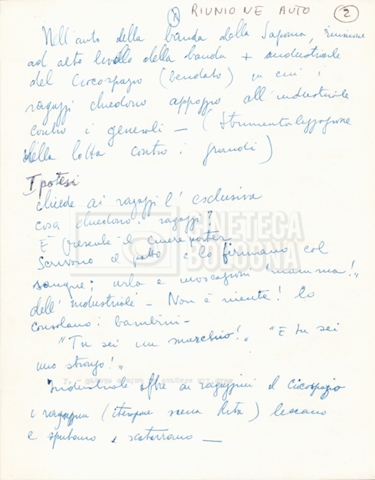 RIUNIONE AUTO 2
Nell'auto della banda della Saponia, riunione
ad alto livello della banda + industriale
del Ciocospazio (Zendato) in cui i
ragazzi chiedono appoggio all'industriale
contro i generali - (Strumentalizzazione
della lotta contro i grandi)
Ipotesi
chiede ai ragazzi l'esclusiva
cosa chiedono i ragazzi?
È presente il cinereporter
Scrivono il patto e lo firmano col
sangue; urla e "mamma!"
dell'industriale - Non è niente! lo
consolano i bambini -
"Tu sei un muschio!" "E tu sei
uno strazo!"
Industriale offre ai ragazzini il Ciocospazio
i ragazzini (scena Rita) leccano
e sputano e sotterrano -
CINETECA
BOLOGNA